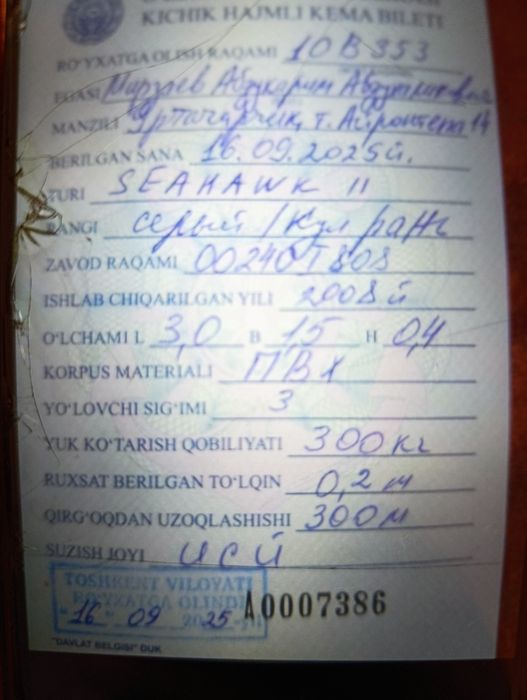 KICHIK HAJMLI KEMA BILETI
RO‘YXATGA OLISH RAQAMI 10 B 353
EGASI Мирзаев Абдукарим
MANZILI Ўртачирчиқ, т.
BERILGAN SANA 16.09.2025й.
TURI SEAHAWK II
RANGI серый / Кул ранг
ZAVOD RAQAMI 002401808
ISHLAB CHIQARILGAN YILI 2008 й
O‘LCHAMI L 3,0 B 1,5 H 0,4
KORPUS MATERIALI ПВХ
YO‘LOVCHI SIG‘IMI 3
YUK KO‘TARISH QOBILIYATI 300 кг
RUXSAT BERILGAN TO‘LQIN 0,2 м
QIRG‘OQDAN UZOQLASHISHI 300 м
SUZISH JOYI ИСЙ
TOSHKENT VILOYATI
RO‘YXATGA OLINDI
"16" 09 2025-yil A0007386
"DAVLAT BELGISI" DUK